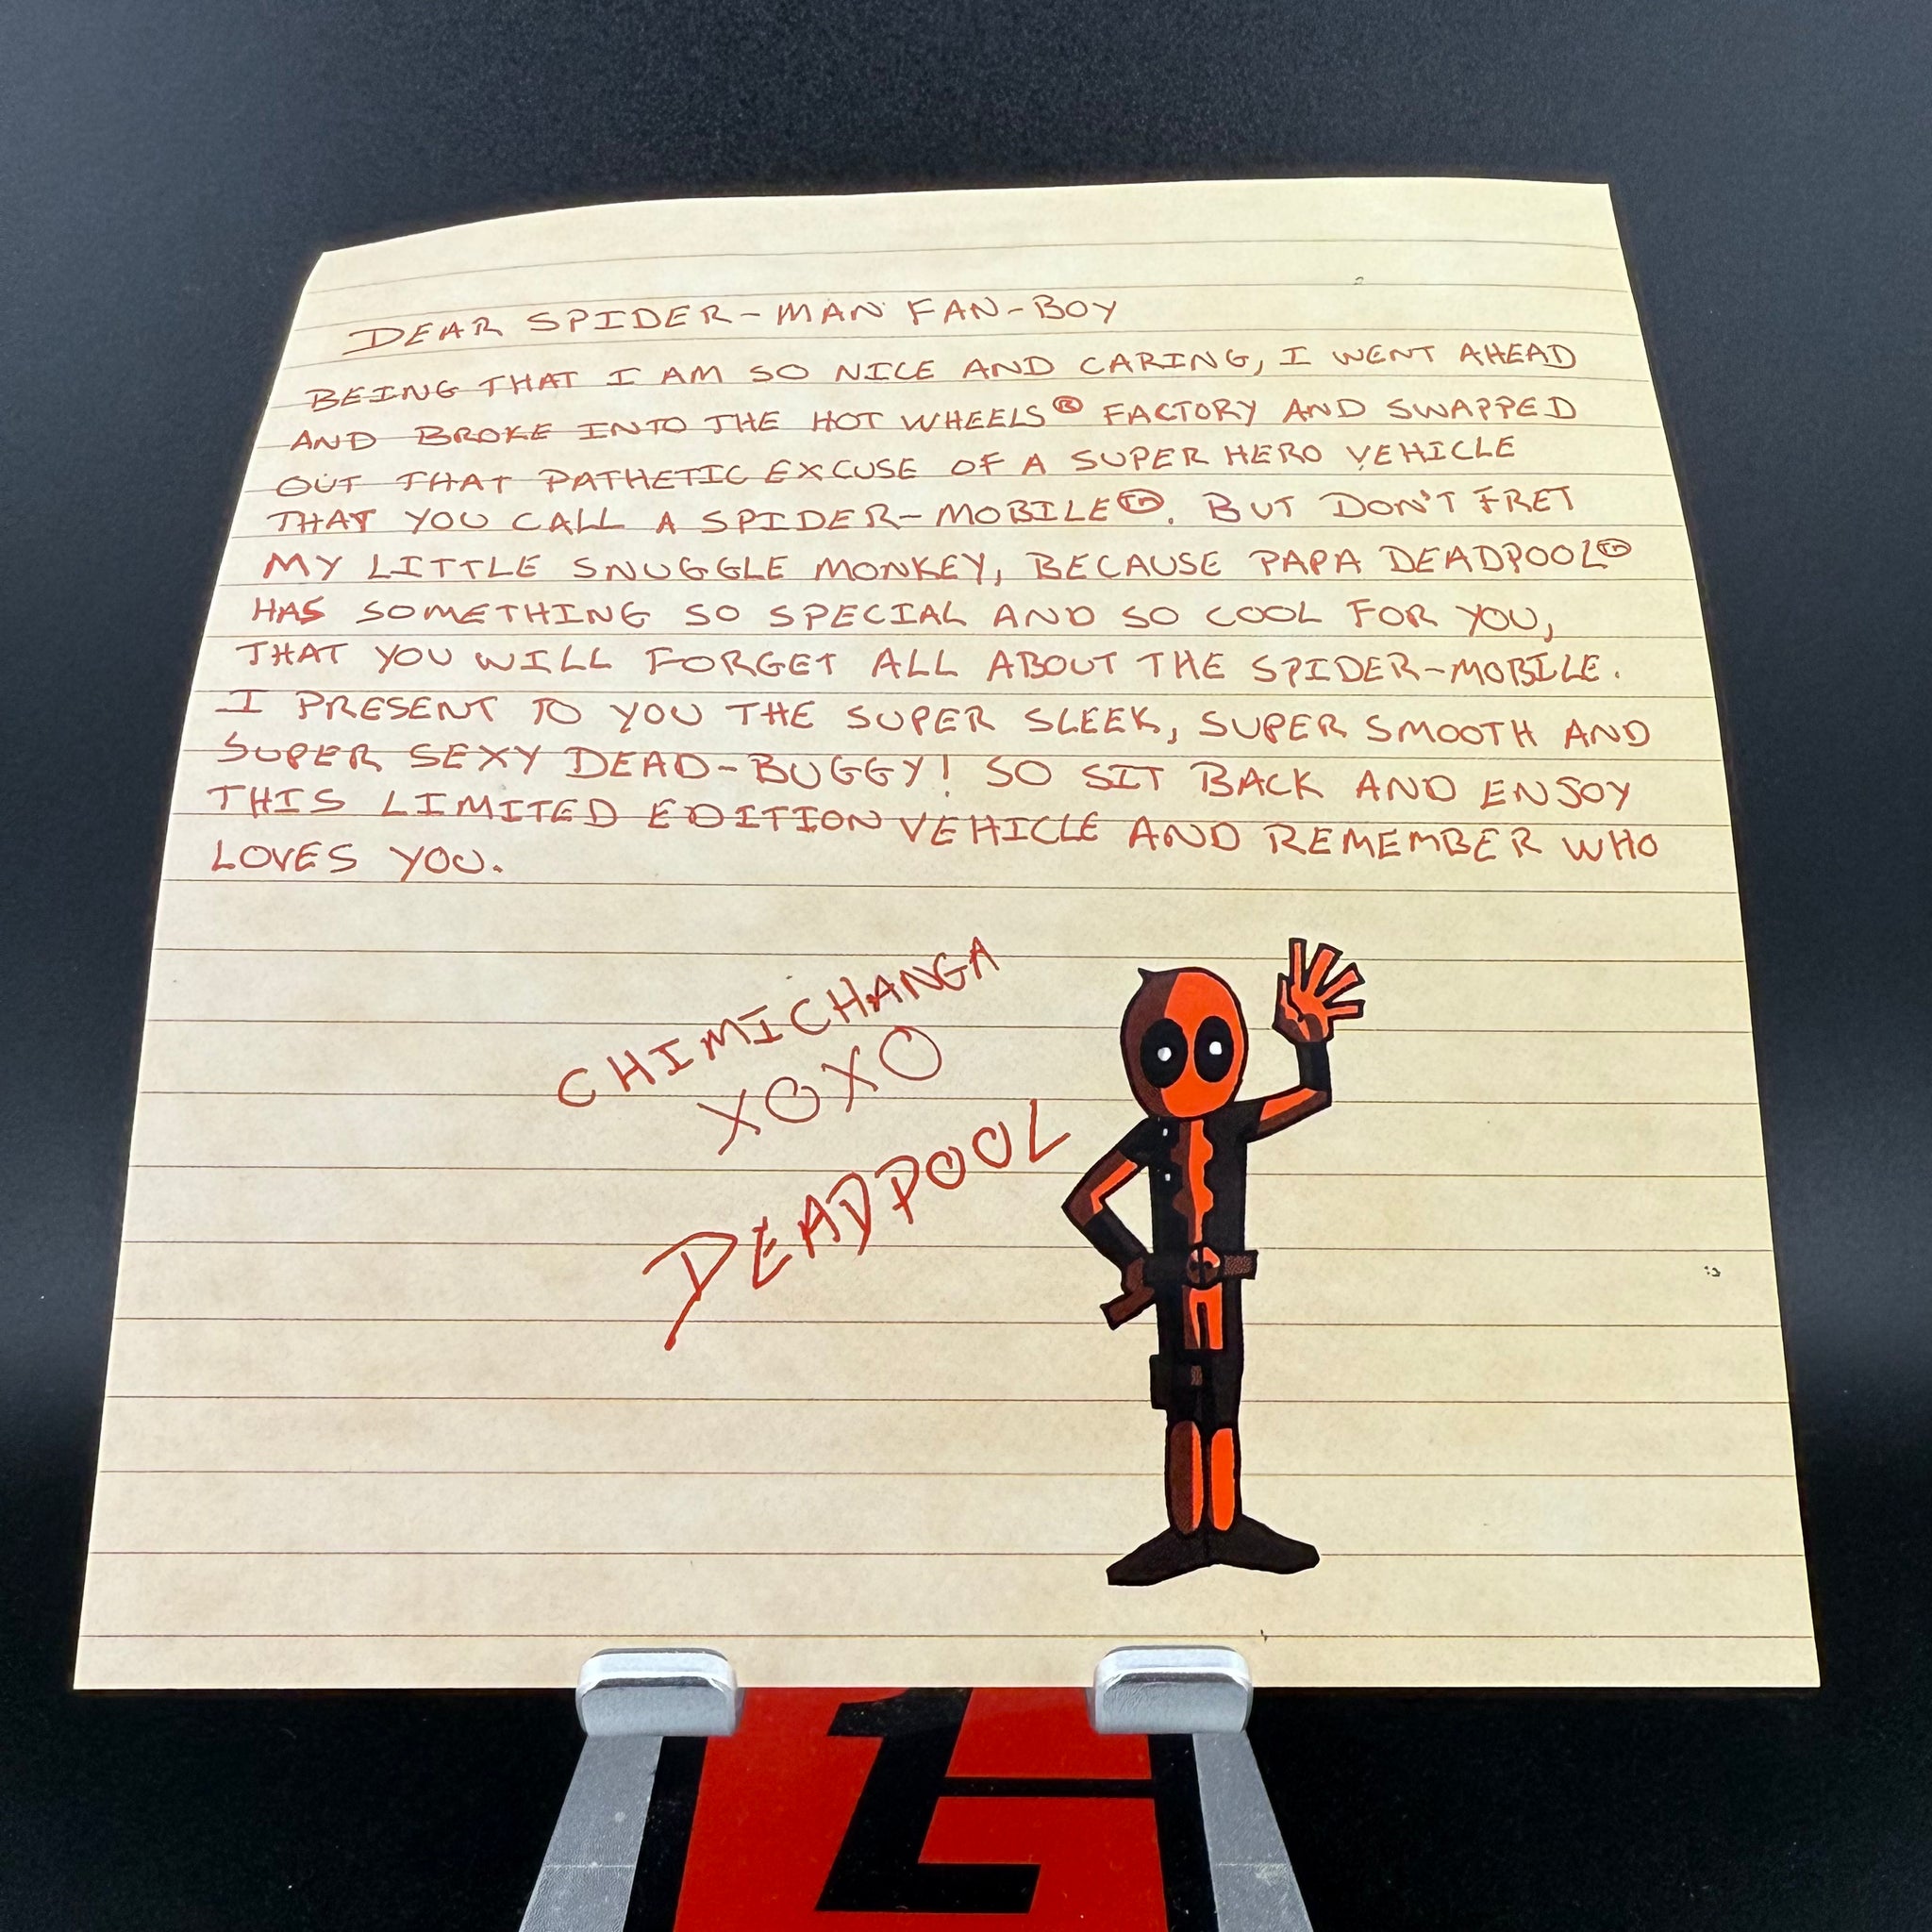 DEAR SPIDER-MAN FAN-BOY
BEING THAT I AM SO NICE AND CARING, I WENT AHEAD
AND BROKE INTO THE HOT WHEELS® FACTORY AND SWAPPED
OUT THAT PATHETIC EXCUSE OF A SUPER HERO VEHICLE
THAT YOU CALL A SPIDER-MOBILE™. BUT DON'T FRET
MY LITTLE SNUGGLE MONKEY, BECAUSE PAPA DEADPOOL™
HAS SOMETHING SO SPECIAL AND SO COOL FOR YOU,
THAT YOU WILL FORGET ALL ABOUT THE SPIDER-MOBILE.
I PRESENT TO YOU THE SUPER SLEEK, SUPER SMOOTH AND
SUPER SEXY DEAD-BUGGY! SO SIT BACK AND ENJOY
THIS LIMITED EDITION VEHICLE AND REMEMBER WHO
LOVES YOU.
CHIMICHANGA
XOXO
DEADPOOL